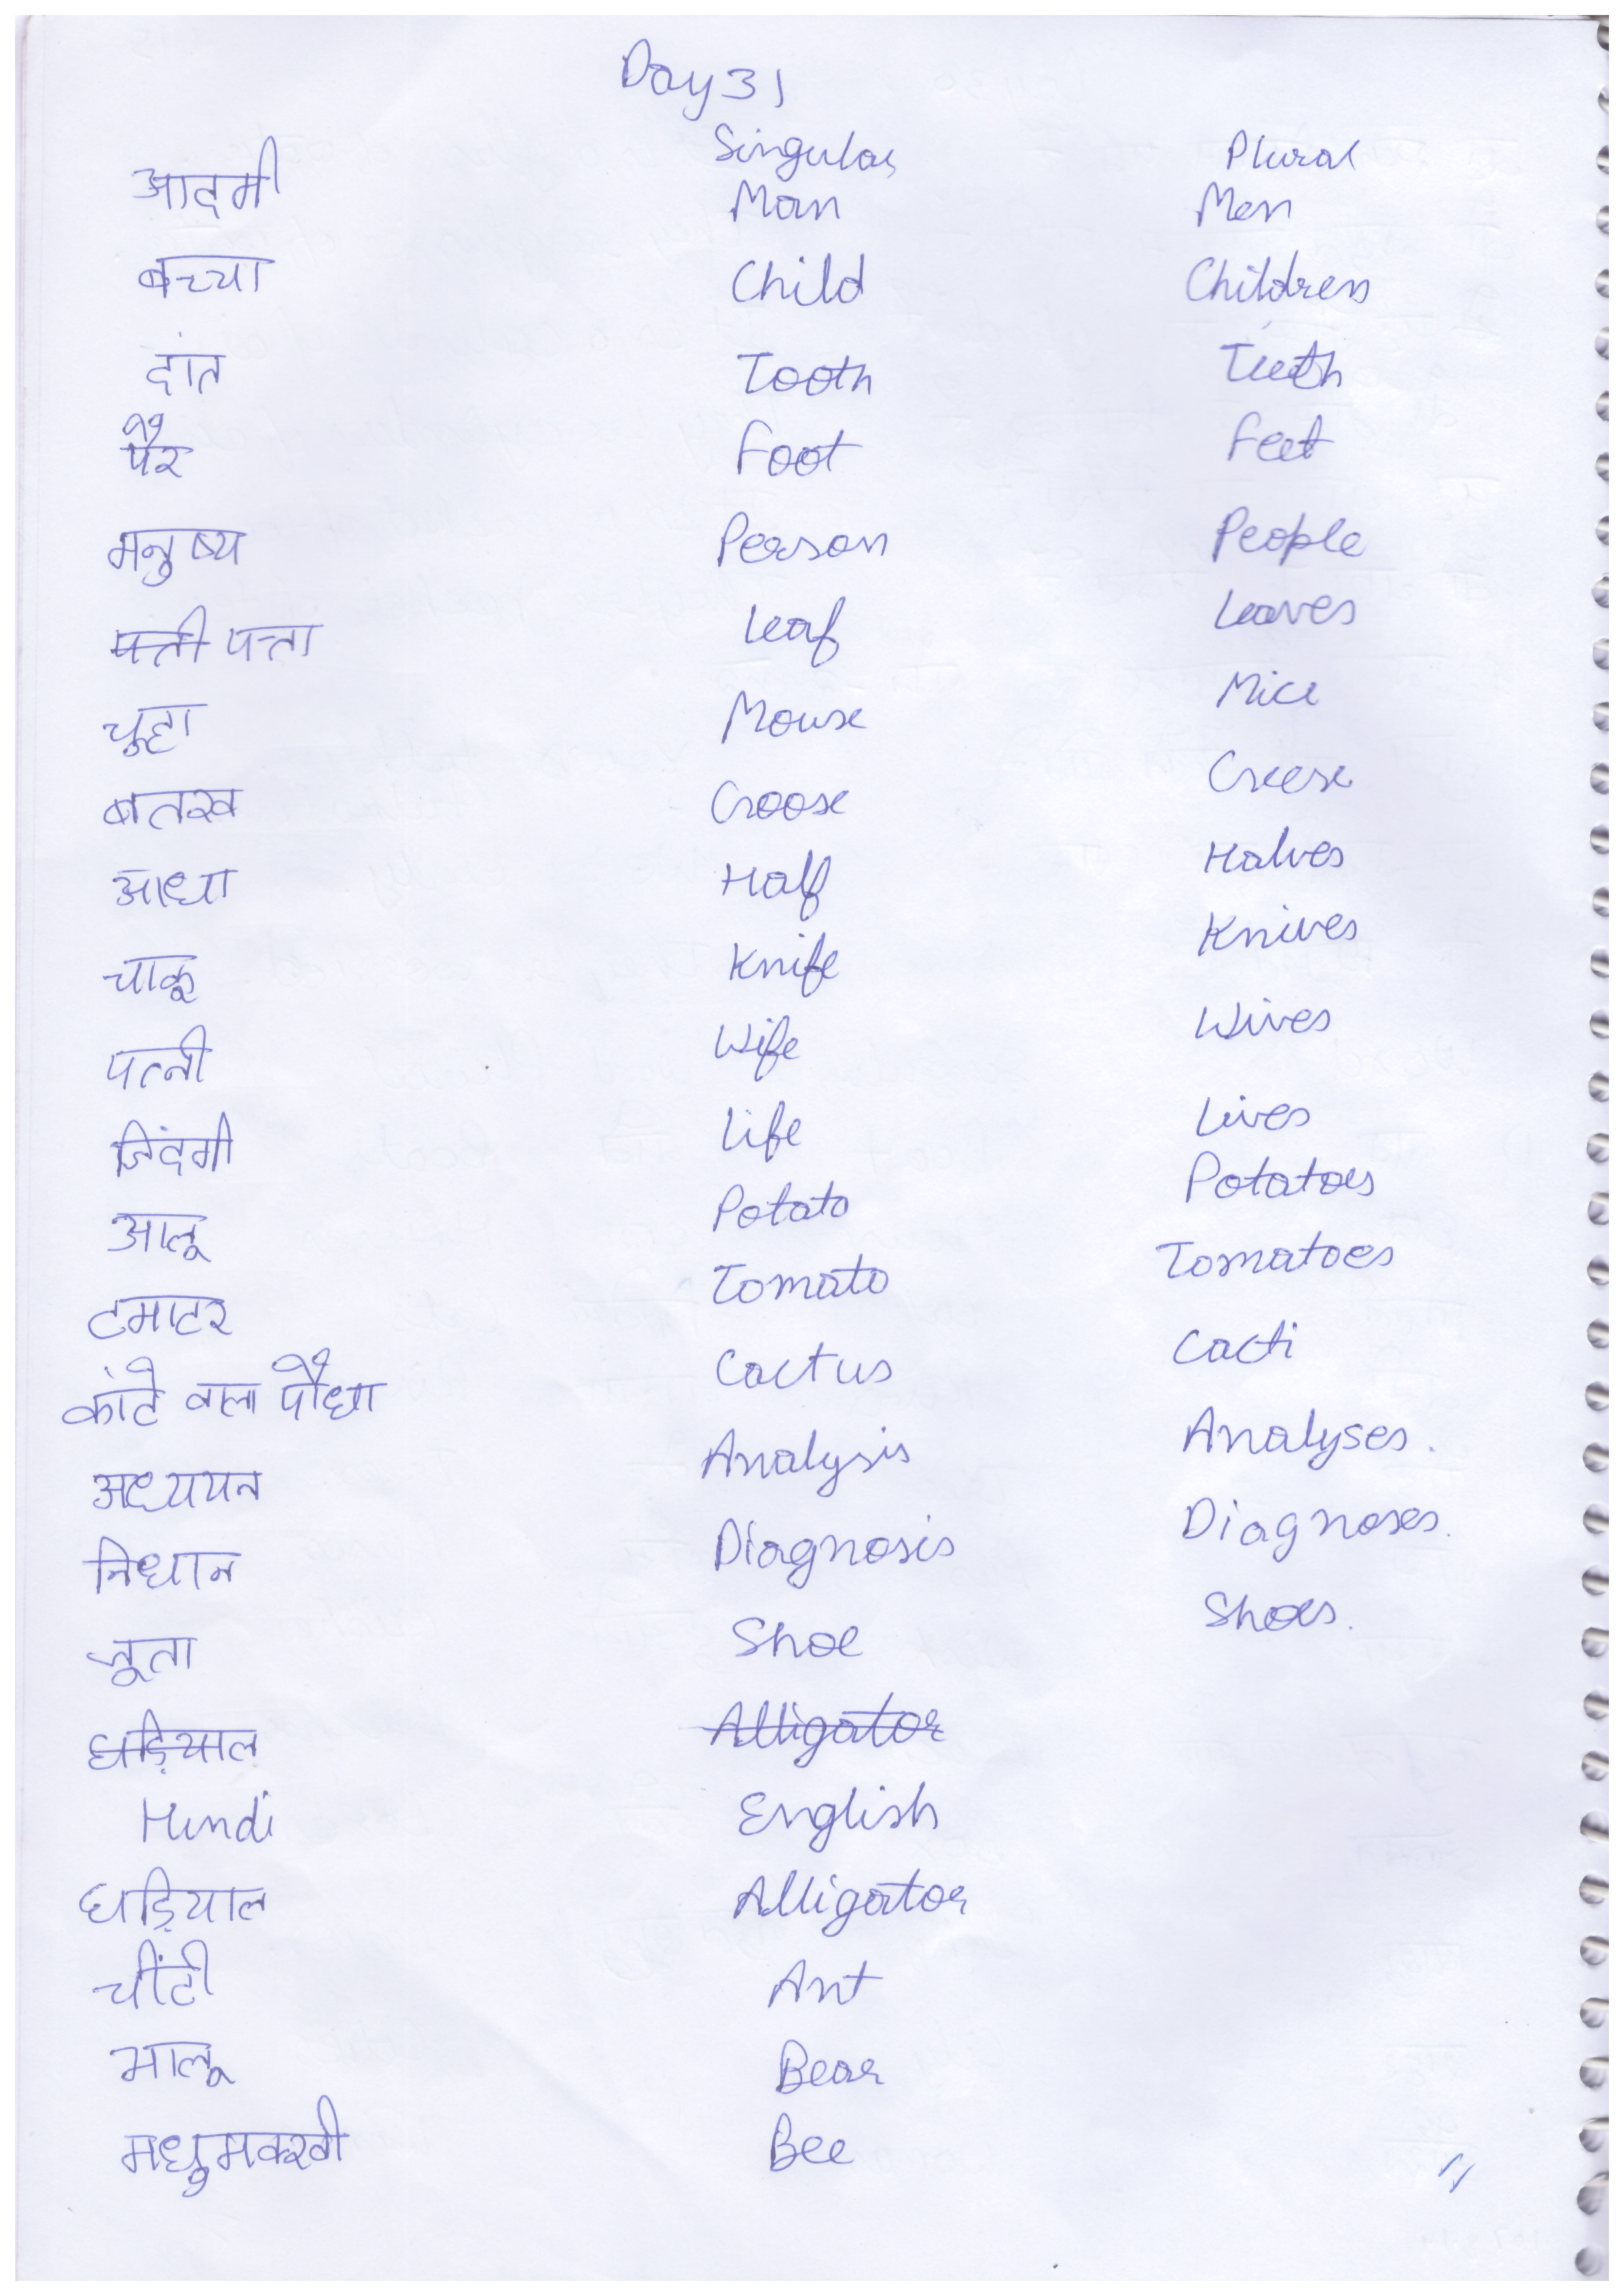 Day 31
Singular Plural
आदमी Man Men
बच्चा Child Children
दांत Tooth Teeth
पैर Foot Feet
मनुष्य Person People
पत्ती पत्ता Leaf Leaves
चूहा Mouse Mice
बतख Goose Geese
आधा Half Halves
चाकू Knife Knives
पत्नी Wife Wives
जिंदगी Life Lives
आलू Potato Potatoes
टमाटर Tomato Tomatoes
कांटे वाला पौधा Cactus Cacti
अध्ययन Analysis Analyses.
निधान Diagnosis Diagnoses.
जूता Shoe Shoes.
घड़ियाल Alligator
Hindi English
घड़ियाल Alligator
चींटी Ant
भालू Bear
मधुमक्खी Bee